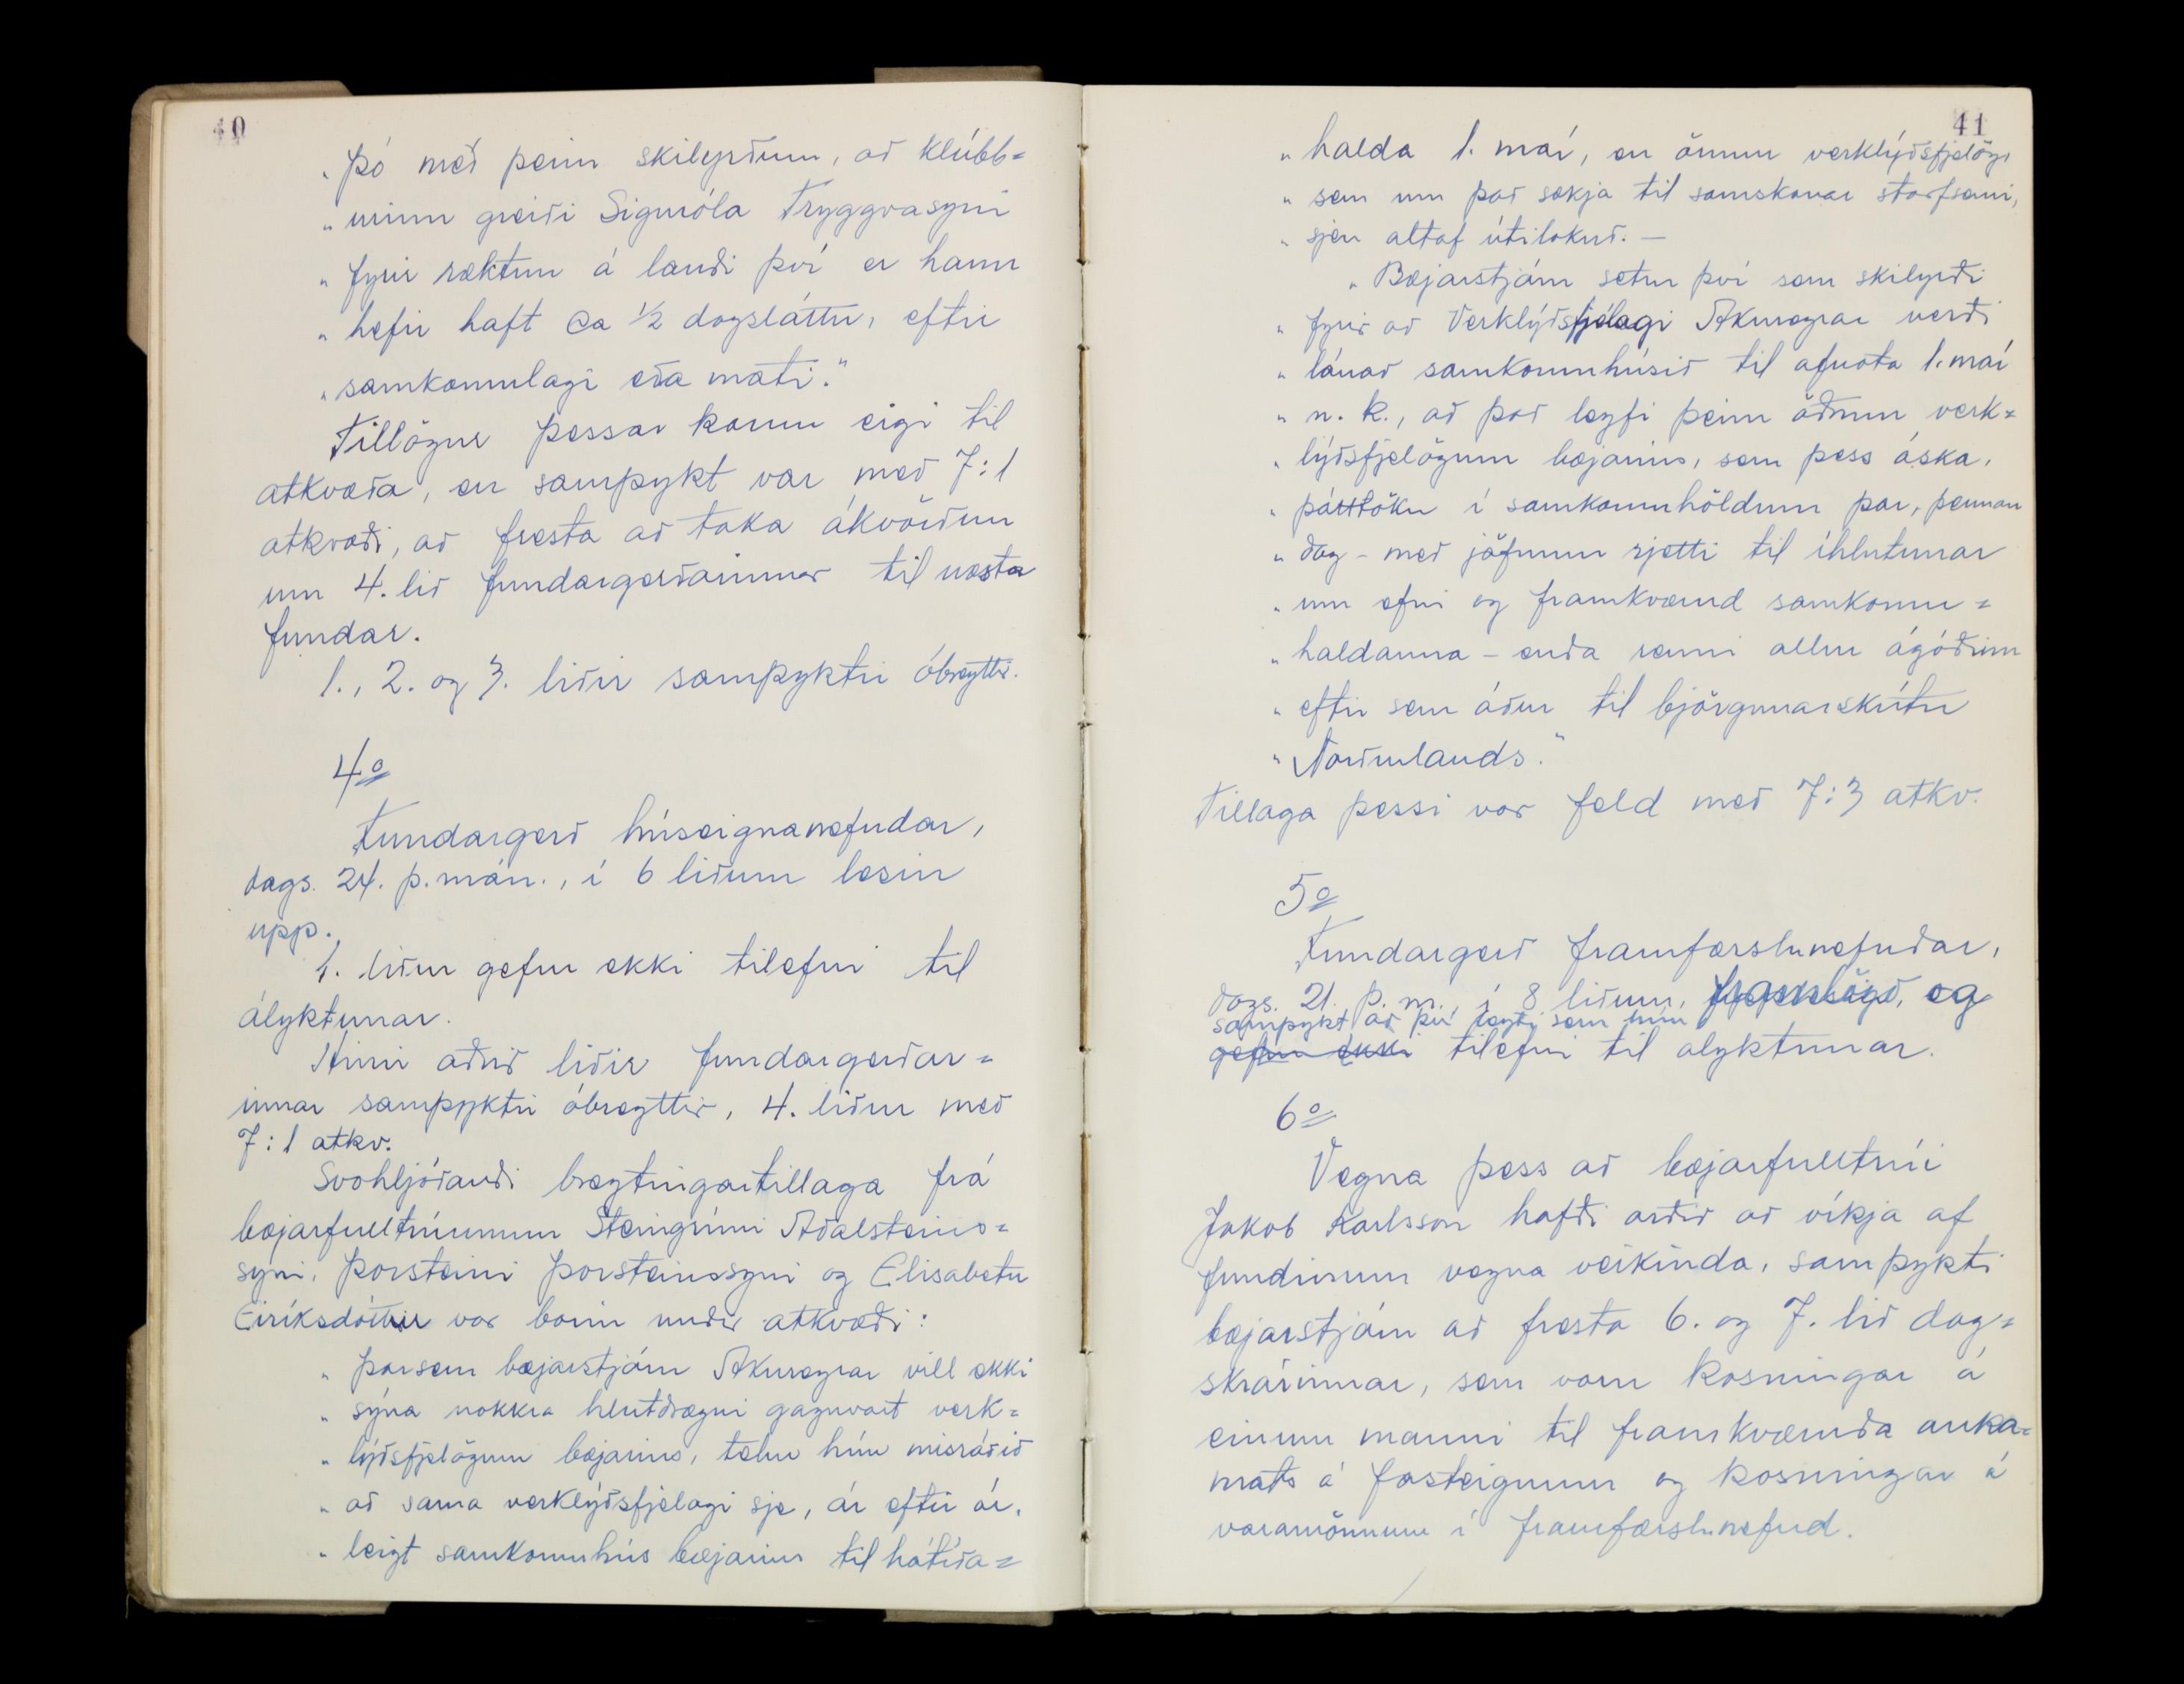 40
„Þó með þeim skilyrðum, að klúbb=
„urinn greiði Siguróla Tryggvasyni
„fyrir ræktun á landi því er hann
„hefir haft ca ½ dagsláttu, eftir
„samkomulagi eða mati."
Tillögur þessar komu eigi til
atkvæða, en samþykt var með 7:1
atkvæði, að fresta að taka ákvörðun
um 4. lið fundargerðarinnar til næsta
fundar.
1., 2. og 3. liðir samþyktir óbreyttir.
4º
Fundargerð húseignanefndar,
dags. 24. þ. mán., í 6 liðum lesin
upp.
1. liður gefur ekki tilefni til
ályktunar.
Hinir aðrir liðir fundargerðar=
innar samþyktir óbreyttir, 4. liður með
7:1 atkv.
Svohljóðandi breytingartillaga frá
bæjarfulltrúunum Steingrími Aðalsteins=
syni, Þorsteini Þorsteinssyni og Elisabetu
Eiríksdóttur var borin undir atkvæði:
„Þar sem bæjarstjórn Akureyrar vill ekki
„sýna nokkra hlutdrægni gagnvart verk=
„lýðsfjelögum bæjarins, telur hún misráðið
„að sama verklýðsfjelagi sje, ár eftir ár,
„leigt samkomuhús bæjarins til hátíða=
41
„halda 1. maí, en önnur verklýðsfjelög,
„sem um það sækja til samskonar starfsemi,
„sjeu altaf útilokuð. —
„Bæjarstjórn setur því sem skilyrði
„fyrir að Verklýðsfjelagi Akureyrar verði
„lánað samkomuhúsið til afnota 1. maí
„n. k., að það leyfi þeim öðrum verk=
„lýðsfjelögum bæjarins, sem þess óska,
„þátttöku í samkomuhöldum þar, þennan
„dag – með jöfnum rjetti til íhlutunar
„um efni og framkvæmd samkomu=
„haldanna – enda renni allur ágóðinn
„eftir sem áður til björgunarskútu
„Norðurlands."
Tillaga þessi var feld með 7:3 atkv.
5º
Fundargerð framfærslunefndar,
dags. 21. þ. m., í 8 liðum, framlögð, og
samþykt að því leyti sem hún
gefur ekki tilefni til ályktunar.
6º
Vegna þess að bæjarfulltrúi
Jakob Karlsson hafði orðið að víkja af
fundinum vegna veikinda, samþykti
bæjarstjórn að fresta 6. og 7. lið dag=
skrárinnar, sem voru kosningar á
einum manni til framkvæmda auka=
mats á fasteignum og kosningar á
varamönnum í framfærslunefnd.